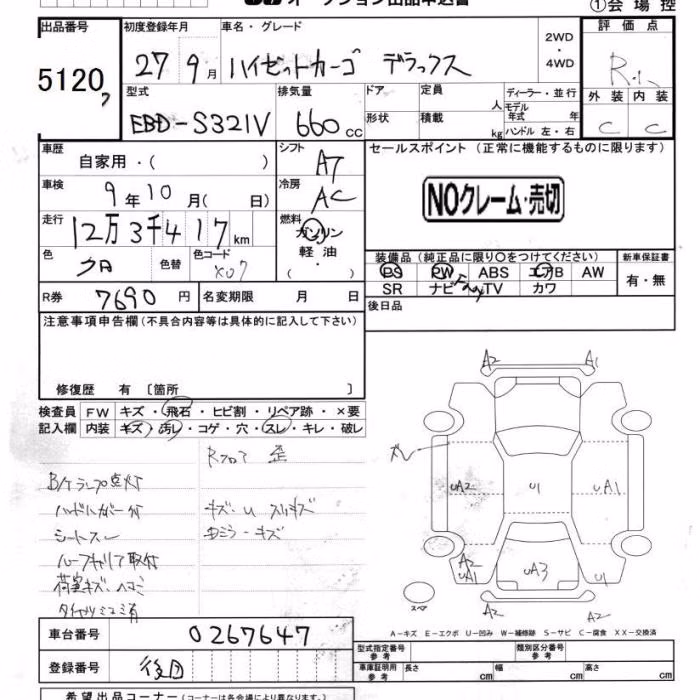 オークション出品申込書
①会場控
出品番号 初度登録年月 車名・グレード 2WD・4WD 評価点
5120 27年9月 ハイゼットカーゴ デラックス
型式 排気量 ドア 定員 人 ディーラー・並行 外装 内装
EBD-S321V 660cc 形状 積載 kg モデル年式 年 ハンドル 左・右 C C
車歴 シフト セールスポイント（正常に機能するものに限ります）
自家用・( ) A7
車検 冷房 NOクレーム・売切
9年10月( 日) AC
走行 燃料
12万3千417km ガソリン
軽油
色 色替 色コード 装備品（純正品に限り○をつけてください） 新車保証書
PS PW ABS エアB AW 有・無
SR ナビ TV カワ
R券 7690円 名変期限 月 日 後日品
注意事項申告欄（不具合内容等は具体的に記入して下さい）
修復歴 有〔箇所 〕
検査員 FW キズ・飛石・ヒビ割・リペア跡・×要
記入欄 内装 キズ・汚レ・コゲ・穴・スレ・キレ・破レ
A2 A1
B/Kランプ点灯
ハンドルカバー付 キズ・U スリキズ
UA2 U1 UA1
ルーフキャリア取付
荷室キズ・ヘコミ
A2 UA1 UA3 U1
スペア
A2 A2
A－キズ E－エクボ U－凹み W－補修跡 S－サビ C－腐食 XX－交換済
車台番号 0267647
型式指定番号 参考 類別区分番号 参考
登録番号 後日
車庫証明用 参考 長さ cm 幅 cm 高さ cm
希望出品コーナー（コーナーは各会場により異なります）